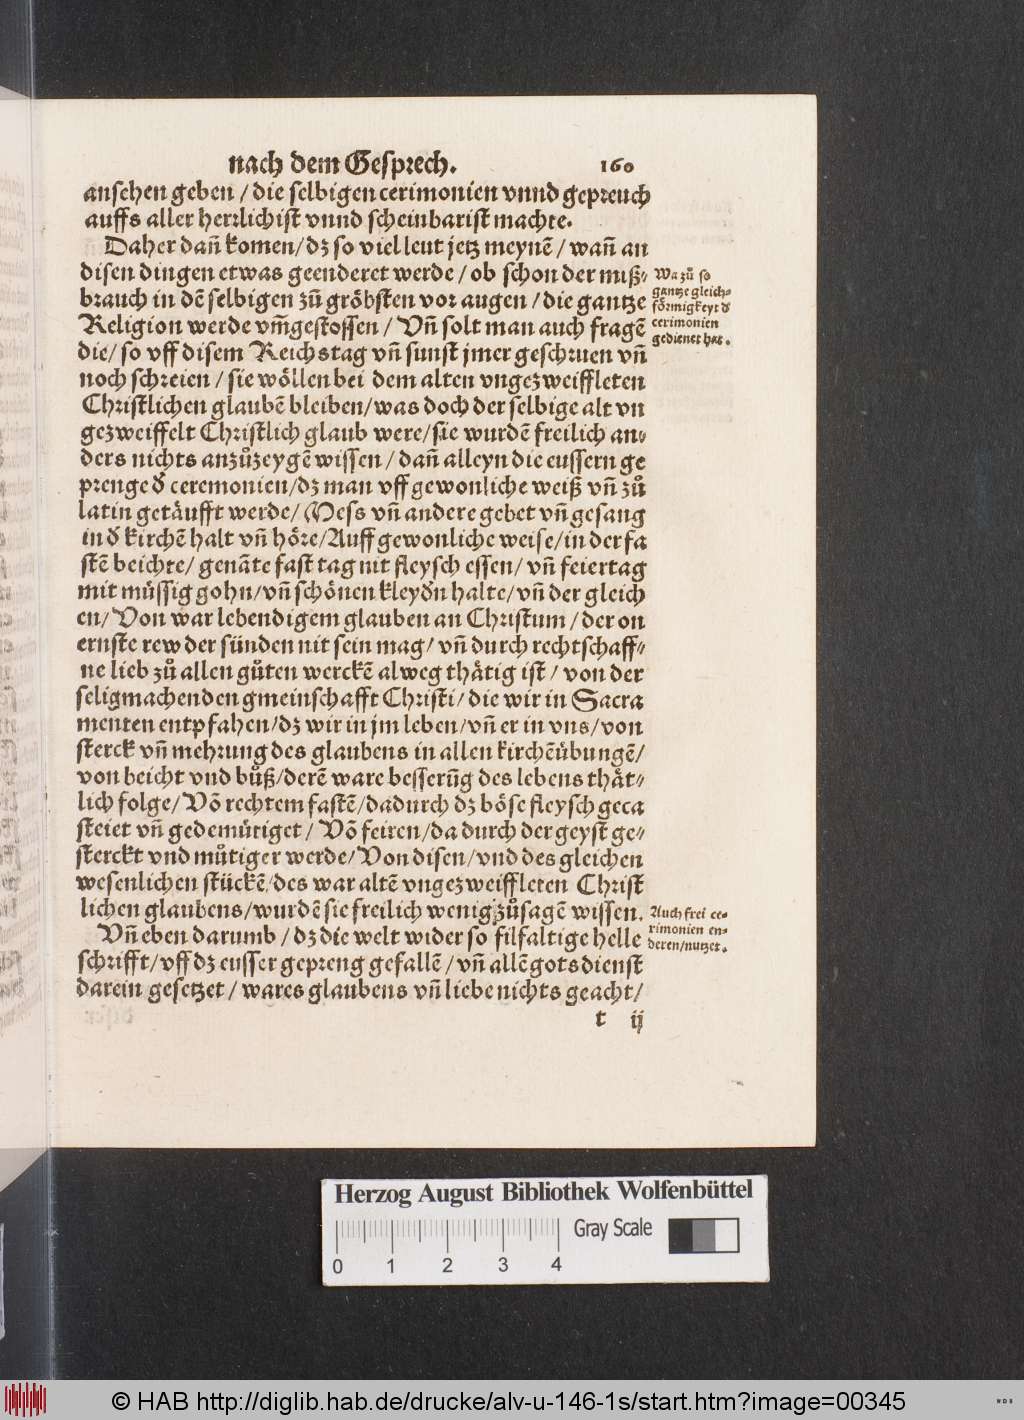 nach dem Gesprech. 160
ansehen geben / die selbigen cerimonien vnnd gepreuch
auffs aller herrlichist vnnd scheinbarist machte.
Daher dañ komen/dz so viel leut jetz meynē / wañ an
disen dingen etwas geenderet werde / ob schon der miß⸗
brauch in dē selbigen zů gröbsten vor augen / die gantze
Religion werde vm̃gestossen / Vñ solt man auch fragē
die/ so vff disem Reichstag vñ sunst jmer geschruen vñ
noch schreien / sie wöllen bei dem alten vngezweiffleten
Christlichen glaubē bleiben/was doch der selbige alt vn
gezweiffelt Christlich glaub were/sie wurdē freilich an⸗
ders nichts anzůzeygē wissen / dañ alleyn die eussern ge
prenge d̕ ceremonien/dz man vff gewonliche weiß vñ zů
latin getäufft werde/ Mess vñ andere gebet vñ gesang
in d̕ kirchē halt vñ höre/Auff gewonliche weise/in der fa
stē beichte/ genāte fast tag nit fleysch essen/ vñ feiertag
mit müssig gohn/vñ schönen kleyd̕n halte/vñ der gleich
en/ Von war lebendigem glauben an Christum / der on
ernste rew der sünden nit sein mag/ vñ durch rechtschaff⸗
ne lieb zů allen gůten werckē alweg thätig ist / von der
seligmachenden gmeinschafft Christi/ die wir in Sacra
menten entpfahen/dz wir in jm leben/vñ er in vns/von
sterck vñ mehrung des glaubens in allen kirchēübungē/
von beicht vnd bůß/derē ware besserūg des lebens thät⸗
lich folge/ Võ rechtem fastē/dadurch dz böse fleysch geca
steiet vñ gedemütiget / Võ feiren/da durch der geyst ge⸗
sterckt vnd můtiger werde/ Von disen/vnd des gleichen
wesenlichen stückē/des war altē vngezweiffleten Christ
lichen glaubens/wurdē sie freilich wenig zůsagē wissen.
Vñ eben darumb / dz die welt wider so filfaltige helle
schrifft/vff dz eusser gepreng gefallē / vñ allē gots dienst
darein gesetzet / wares glaubens vñ liebe nichts geacht/
t ij
Wa zů so
gantze gleich⸗
förmigkeyt d̕
cerimonien
gedienet hat.
Auch frei ce⸗
rimonien en⸗
deren/nutzet.
Herzog August Bibliothek Wolfenbüttel
Gray Scale
0 1 2 3 4
© HAB http://diglib.hab.de/drucke/alv-u-146-1s/start.htm?image=00345